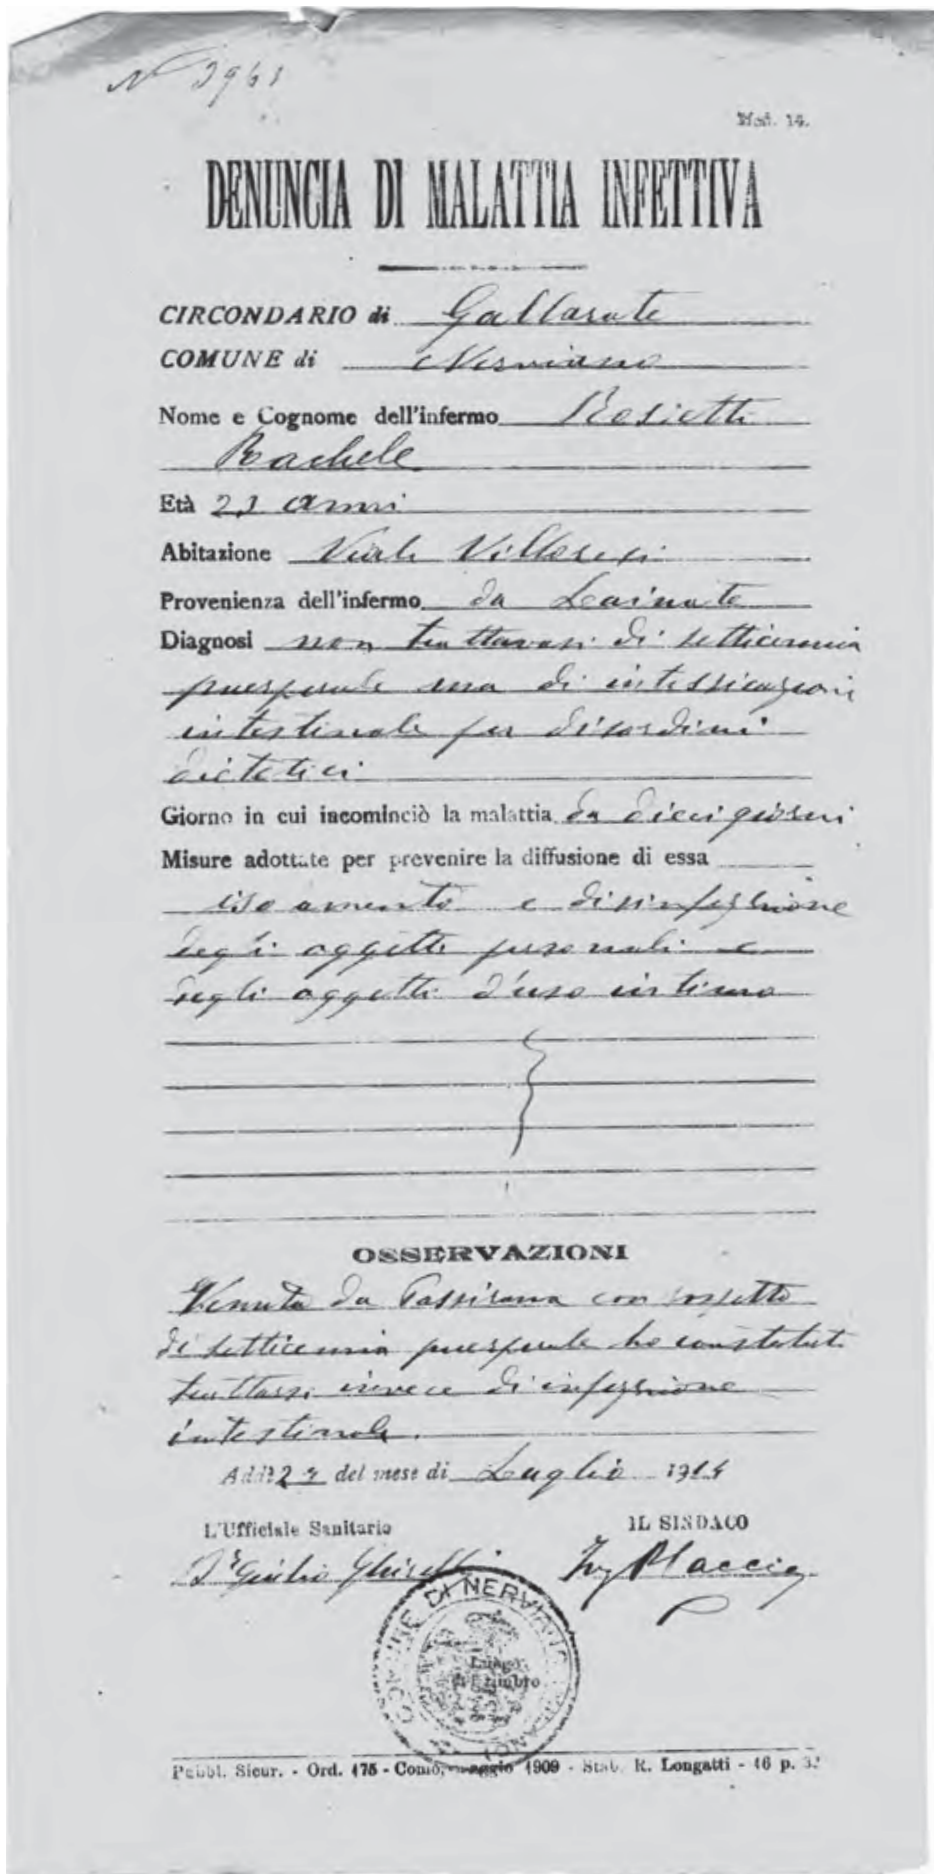 N 3961
Mod. 14.
DENUNCIA DI MALATTIA INFETTIVA
CIRCONDARIO di Gallarate
COMUNE di Nerviano
Nome e Cognome dell'infermo Rosietti
Rachele
Età 23 anni
Abitazione Viale Villoresi
Provenienza dell'infermo da Lainate
Diagnosi non trattavasi di setticemia
puerperale ma di intossicazioni
intestinale per disordini
dietetici
Giorno in cui incominciò la malattia da dieci giorni
Misure adottate per prevenire la diffusione di essa
isolamento e disinfezione
degli oggetti personali e
degli oggetti d'uso intimo
OSSERVAZIONI
Venuta da Passirana con sospetto
di setticemia puerperale ho constatato
trattarsi invece di infezione
intestinale.
Addì 27 del mese di Luglio 1914
L'Ufficiale Sanitario
IL SINDACO
Dr Giulio Ghiselli
Ing
COMUNE DI NERVIANO
MILANO
Luogo
del timbro
Pubbl. Sicur. - Ord. 175 - Como, maggio 1909 - Stab. R. Longatti - 16 p. 32